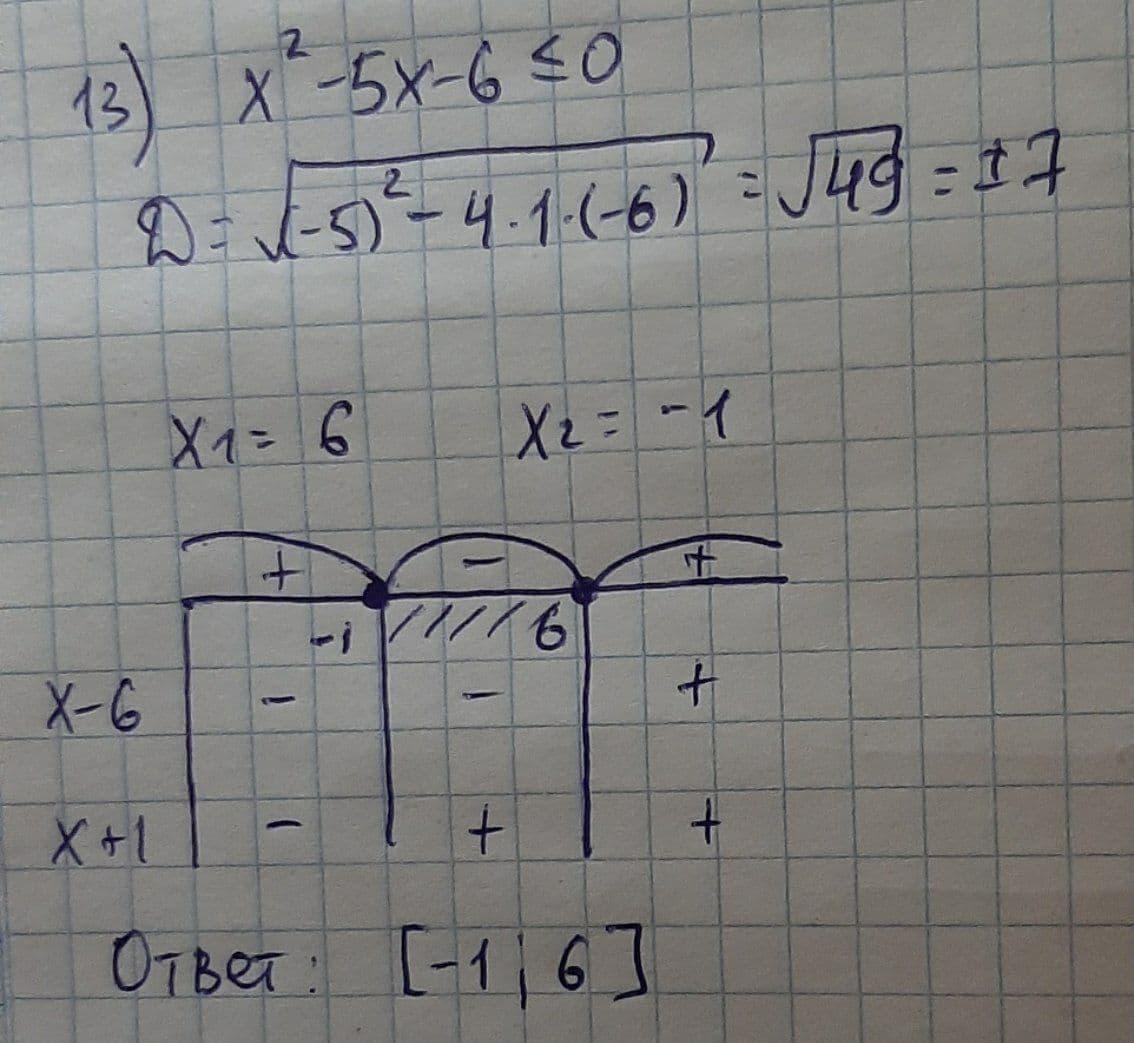 13) x² -5x-6 ≤0
D = √(-5)² - 4·1·(-6) = √49 = ±7
x1= 6 x2= -1
+ - +
-1 6
x-6 - - +
x+1 - + +
Ответ: [-1; 6]